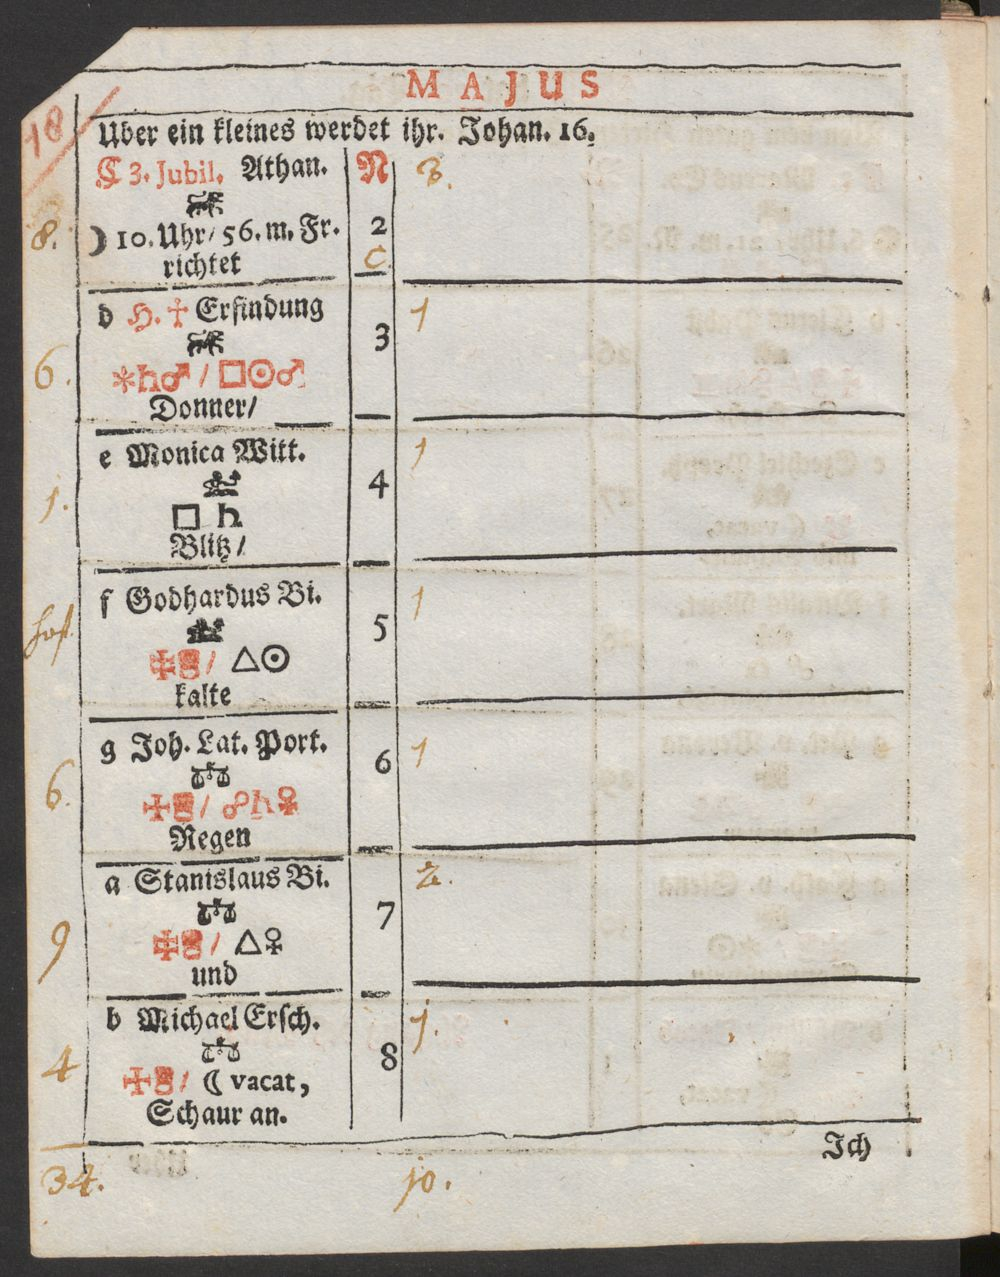 MAJUS
18
Uber ein kleines werdet ihr. Johan. 16.
C 3. Jubil. Athan. N 3.
8. ☽ 10. Uhr/ 56. m. Fr. 2
richtet C
d H. ☩ Erfindung 3 1
6. ✱♄♂ / □☉♂
Donner/
e Monica Witt. 4 1
1. □ ♄
Blitz/
f Godhardus Bi. 5 1
/ △☉
kalte
g Joh. Lat. Port. 6 1
6. / ☍♄♀
Regen
a Stanislaus Bi. 7 2.
9 / △♀
und
b Michael Ersch. 8 1.
4 / ☾ vacat,
Schaur an.
Ich
34. 10.